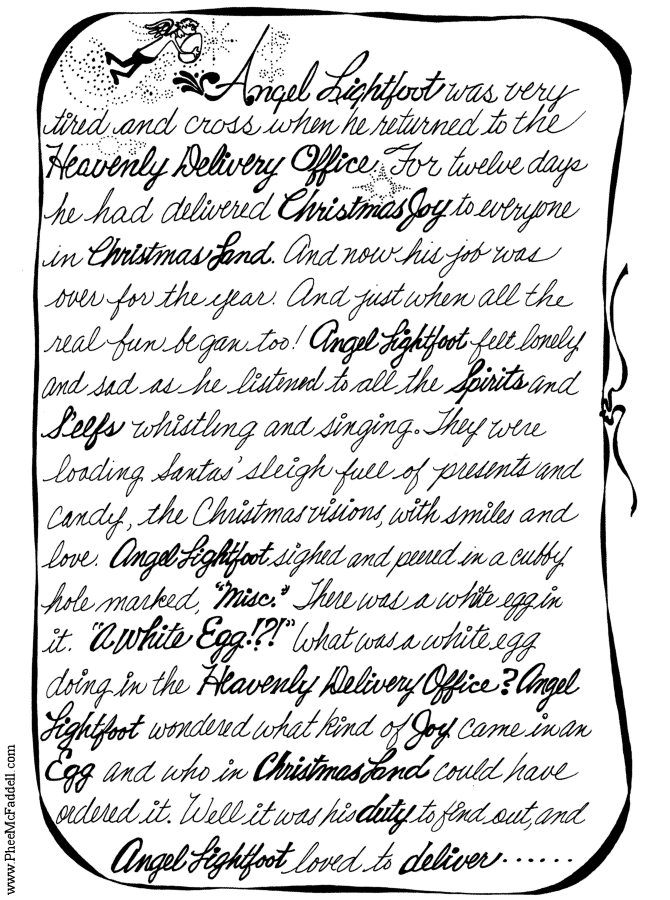 Angel Lightfoot was very
tired and cross when he returned to the
Heavenly Delivery Office. For twelve days
he had delivered Christmas Joy to everyone
in Christmas Land. And now his job was
over for the year. And just when all the
real fun began too! Angel Lightfoot felt lonely
and sad as he listened to all the Spirits and
S'elfs whistling and singing. They were
loading Santas' sleigh full of presents and
candy, the Christmas visions, with smiles and
love. Angel Lightfoot sighed and peered in a cubby
hole marked, "Misc." There was a white egg in
it. "A White Egg!?!" What was a white egg
doing in the Heavenly Delivery Office? Angel
Lightfoot wondered what kind of Joy came in an
Egg and who in Christmas Land could have
ordered it. Well it was his duty to find out, and
Angel Lightfoot loved to deliver······
www.PheeMcFaddell.com